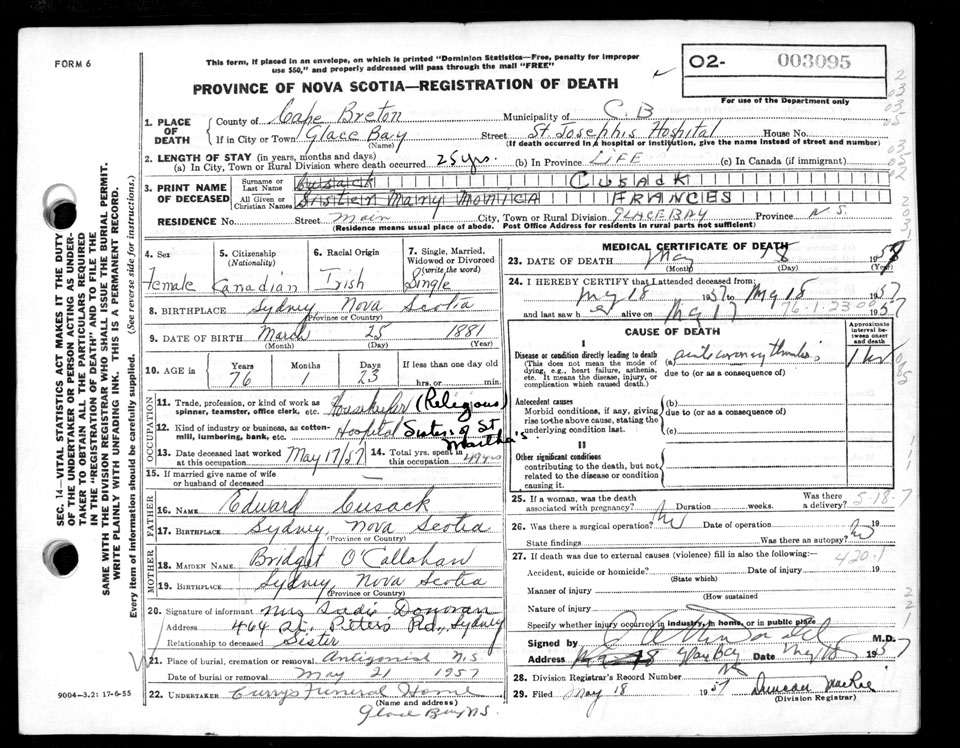 FORM 6
This form, if placed in an envelope, on which is printed "Dominion Statistics—Free, penalty for improper
use $50," and properly addressed will pass through the mail "FREE"
PROVINCE OF NOVA SCOTIA—REGISTRATION OF DEATH
O2- 003095
For use of the Department only
1. PLACE OF DEATH
County of Cape Breton Municipality of C.B
If in City or Town Glace Bay Street St. Joseph's Hospital House No.
(Name) (If death occurred in a hospital or institution, give the name instead of street and number)
2. LENGTH OF STAY (in years, months and days)
(a) In City, Town or Rural Division where death occurred 25 yrs. (b) In Province LIFE (c) In Canada (if immigrant)
3. PRINT NAME OF DECEASED
Surname or Last Name Cusack CUSACK
All Given or Christian Names Sister Mary Monica FRANCES
RESIDENCE No. Street Main City, Town or Rural Division GLACE BAY Province N.S.
(Residence means usual place of abode. Post Office Address for residents in rural parts not sufficient)
SEC. 14—VITAL STATISTICS ACT MAKES IT THE DUTY
OF THE UNDERTAKER OR PERSON ACTING AS UNDER-
TAKER TO OBTAIN ALL THE PARTICULARS REQUIRED
IN THE "REGISTRATION OF DEATH" AND TO FILE THE
SAME WITH THE DIVISION REGISTRAR WHO SHALL ISSUE THE BURIAL PERMIT.
WRITE PLAINLY WITH UNFADING INK. THIS IS A PERMANENT RECORD.
Every item of information should be carefully supplied. (See reverse side for instructions.)
4. Sex 5. Citizenship (Nationality) 6. Racial Origin 7. Single, Married, Widowed or Divorced (write the word)
Female Canadian Irish Single
8. BIRTHPLACE Sydney, Nova Scotia
(Province or Country)
9. DATE OF BIRTH March 25 1881
(Month) (Day) (Year)
10. AGE in Years Months Days If less than one day
76 1 23 hrs. or min.
OCCUPATION
11. Trade, profession, or kind of work as
spinner, teamster, office clerk, etc. Housekeeper (Religious)
12. Kind of industry or business, as cotton-
mill, lumbering, bank, etc. Hospital Sisters of St Martha's.
13. Date deceased last worked at this occupation May 17/57 14. Total yrs. spent in this occupation 49 yrs
15. If married give name of wife
or husband of deceased —
FATHER
16. NAME Edward Cusack
17. BIRTHPLACE Sydney, Nova Scotia
(Province or Country)
MOTHER
18. MAIDEN NAME Bridget O'Callahan
19. BIRTHPLACE Sydney, Nova Scotia
(Province or Country)
20. Signature of informant Mrs Sadie Donovan
Address 464 St. Peters Rd., Sydney
Relationship to deceased Sister
21. Place of burial, cremation or removal Antigonish N.S
Date of burial or removal May 21 1957
22. UNDERTAKER Curry's Funeral Home
(Name and address)
Glace Bay N.S.
9004—3.21 17-6-55
MEDICAL CERTIFICATE OF DEATH
23. DATE OF DEATH May 18 1957
(Month) (Day) (Year)
24. I HEREBY CERTIFY that I attended deceased from:
May 18 1957 to May 18 1957
and last saw h er alive on May 17 1957
76-1-23-00
CAUSE OF DEATH
Approximate interval between onset and death
I
Disease or condition directly leading to death
(This does not mean the mode of
dying, e.g., heart failure, asthenia,
etc. It means the disease, injury, or
complication which caused death.)
(a) acute coronary thrombosis
due to (or as a consequence of)
Antecedent causes
Morbid conditions, if any, giving
rise to the above cause, stating the
underlying condition last.
(b)
due to (or as a consequence of)
(c)
II
Other significant conditions
contributing to the death, but not
related to the disease or condition
causing it.
25. If a woman, was the death associated with pregnancy? Duration weeks. Was there a delivery?
5-18-7
26. Was there a surgical operation? No Date of operation 19
State findings Was there an autopsy? No
27. If death was due to external causes (violence) fill in also the following:—
420.1
Accident, suicide or homicide? Date of injury 19
(State which)
Manner of injury
(How sustained
Nature of injury
Specify whether injury occurred in industry, in home, or in public place
Signed by M.D.
Address Glace Bay Date May 18 1957
28. Division Registrar's Record Number
29. Filed May 18 1957 Duncan MacRae
(Division Registrar)